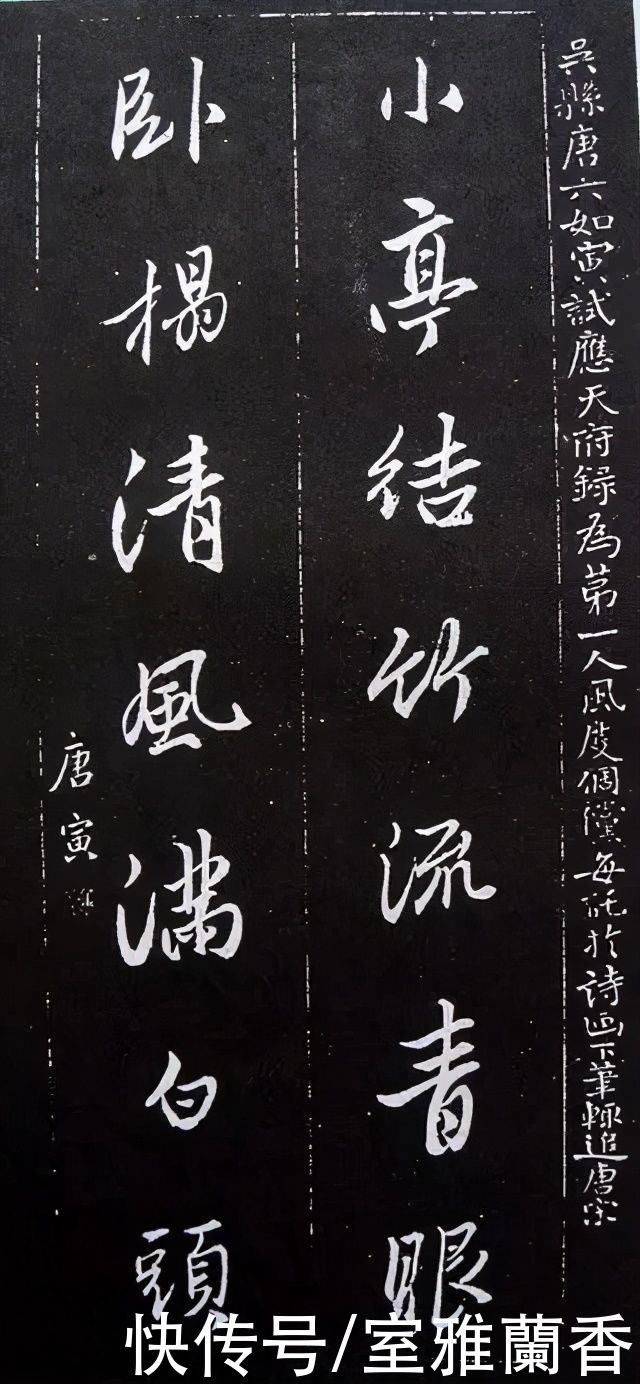 吳縣唐六如寅試應天府錄為第一人風度倜儻每託於詩画下筆輒追唐宋
小亭結竹流青眼
卧榻清風滿白頭
唐寅
快传号/室雅蘭香